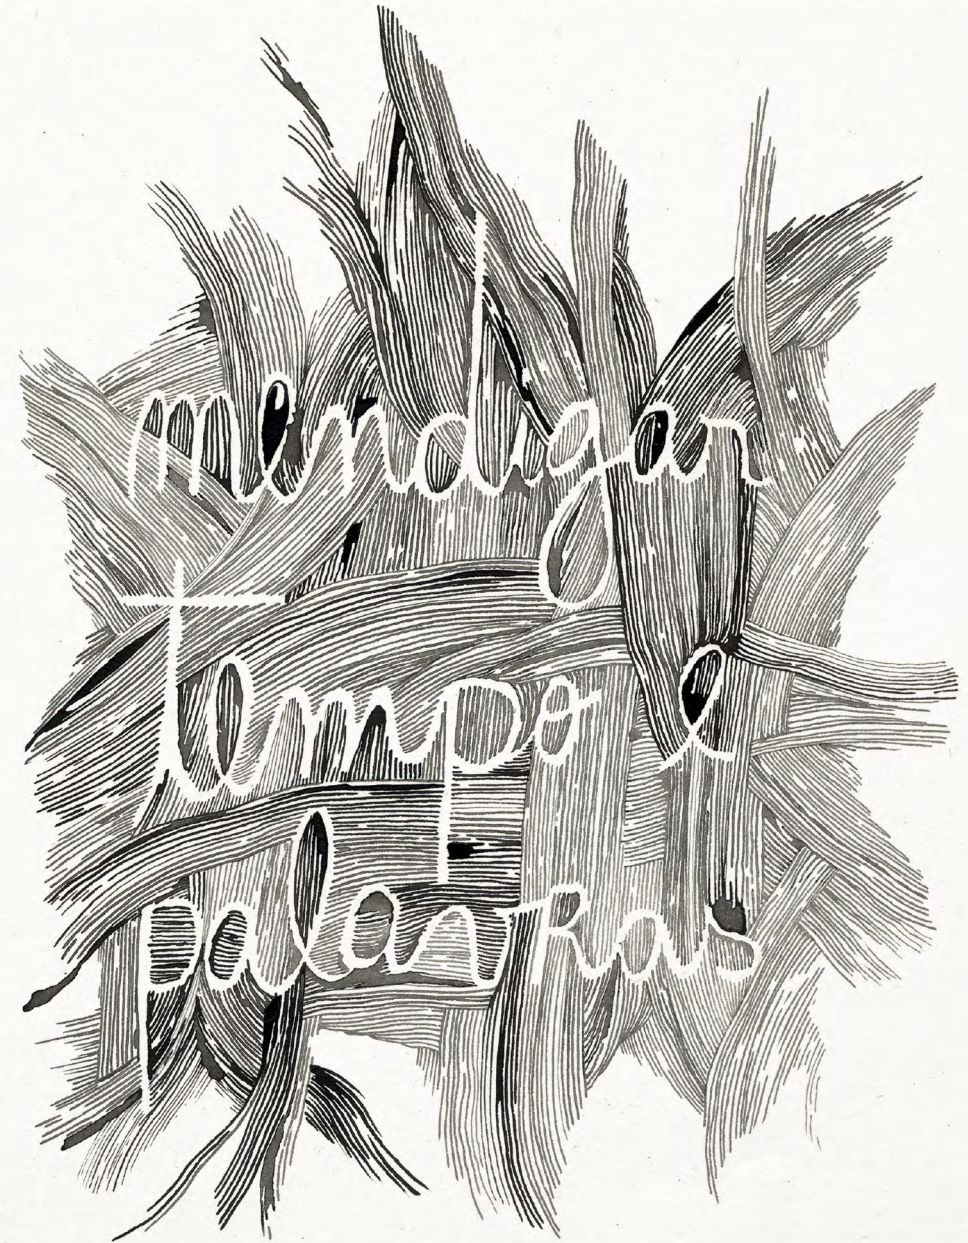 mendigar
tempo e
palavras